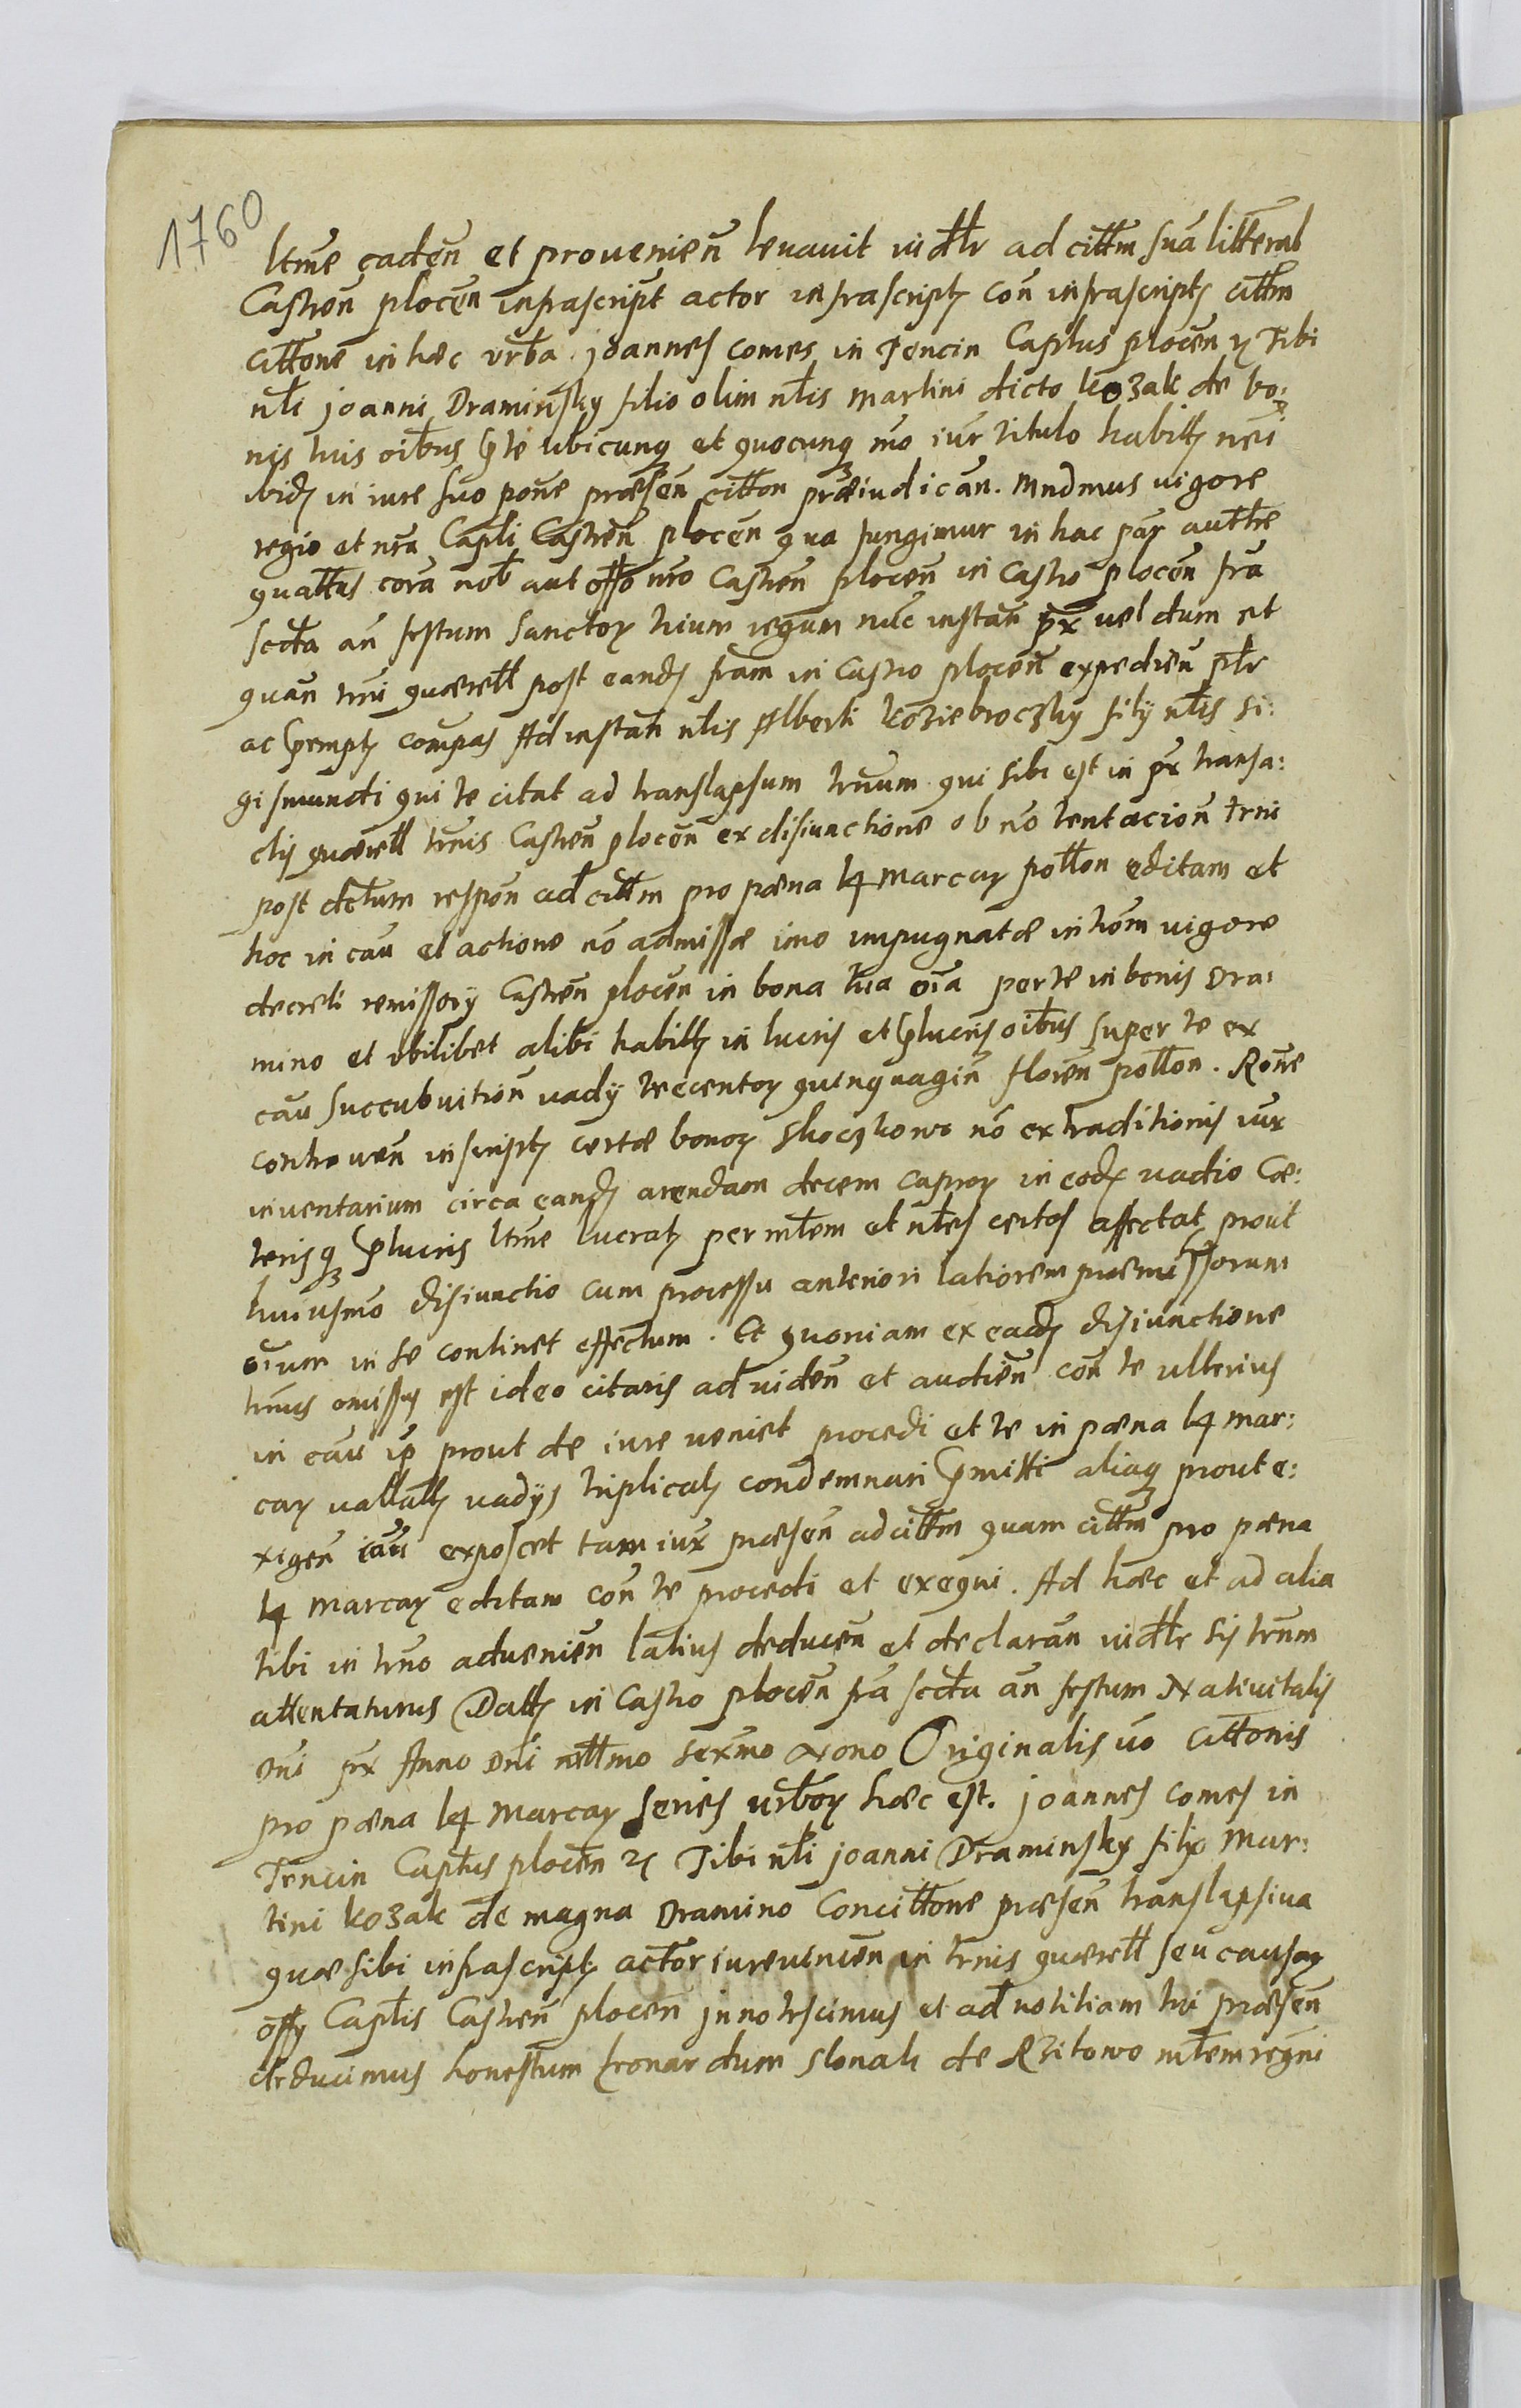 1760
ltime caden et provenien levavit videlr ad cittm sua litteral
Castren plocen infrascript actor infrascript con infrascript cittm
cittone in hæc verba. joannes comes in Tencin Captus plocen Tibi
nli joanni Draminsky filio olim nlis Martini dicto kozak de bo:
nis tuis oibus te ubicunq et quocunq mo iur titulo habitt
in iure suo pone præsen citton præiudican. Mndmus vigore
regio et nra Capli Castren plocen qua fungimur in hac par autthe
quattus cora nob aut offo nro Castren plocen in Castro plocen fra
secda an festum Sanctor trium regum nuc instan pr vel dum et
quan trni querell post eand fram in Castro plocen expedien
ac compas Ad instan nlis Alberti koziebroczky filij nlis Si:
gismundi qui te citat ad translapsum trnum qui sibi est in pr transa:
ctis querell trnis Castren plocen ex disiunctione ob no tentacion trni
post dctum respon ad cittm pro pæna 14 marcar potton editam et
hoc in cau et actione no admissæ imo impugnatæ vigore
decreti remissorij Castren plocen in bona tua oia per te in bonis Dra:
mino et ubilibet alibi habitt in lucris et plucris oibus super te ex
cau succubuition vadij trecentor quinquagin floren potton. Rone
contraven inscript certæ bonor Skoczkowo no extraditionis iur
inventarium circa eand arendam decem capror in eod vadio Cæ:
terisq plucris ltime lucrat per mlem et nles certos affectat prout
huiusmo disiunctio cum processu anteriori latiorem præmissorum
oium in se continet effectum. Et quoniam ex ead disiunctione
trnus omissus est ideo citaris ad viden et audien con te ulterius
in cau ip prout de iure veniet procedi et te in pæna 14 mar:
car vallatt vadijs triplicat condemnari pmitti aliaq prout e:
xigen cau exposcet tam iux præsen ad cittm quam cittm pro pæna
14 marcar editam con te procedi et exequi. Ad hæc et ad alia
tibi in trno advenien latius deducen et declaran videlr sis trnum
attentaturus Datt in Castro plocen fra secda an festum Nativitatis
Dni pr Anno Dni millmo sexmo Nono Originalis vo cittonis
pro pæna 14 marcar series verbor hæc est. joannes comes in
Tencin Captus plocen Tibi nli joanni Draminsky filio Mar:
tini kozak de magna Dramino Concittone præsen translapsiva
quæ sibi infrascript actor iurevincen in trnis querell seu causar
offy Captis Castren plocen innotescimus et ad notitiam tui præsen
deducimus honestum leonardum slonak de Rzitowo mlem regni